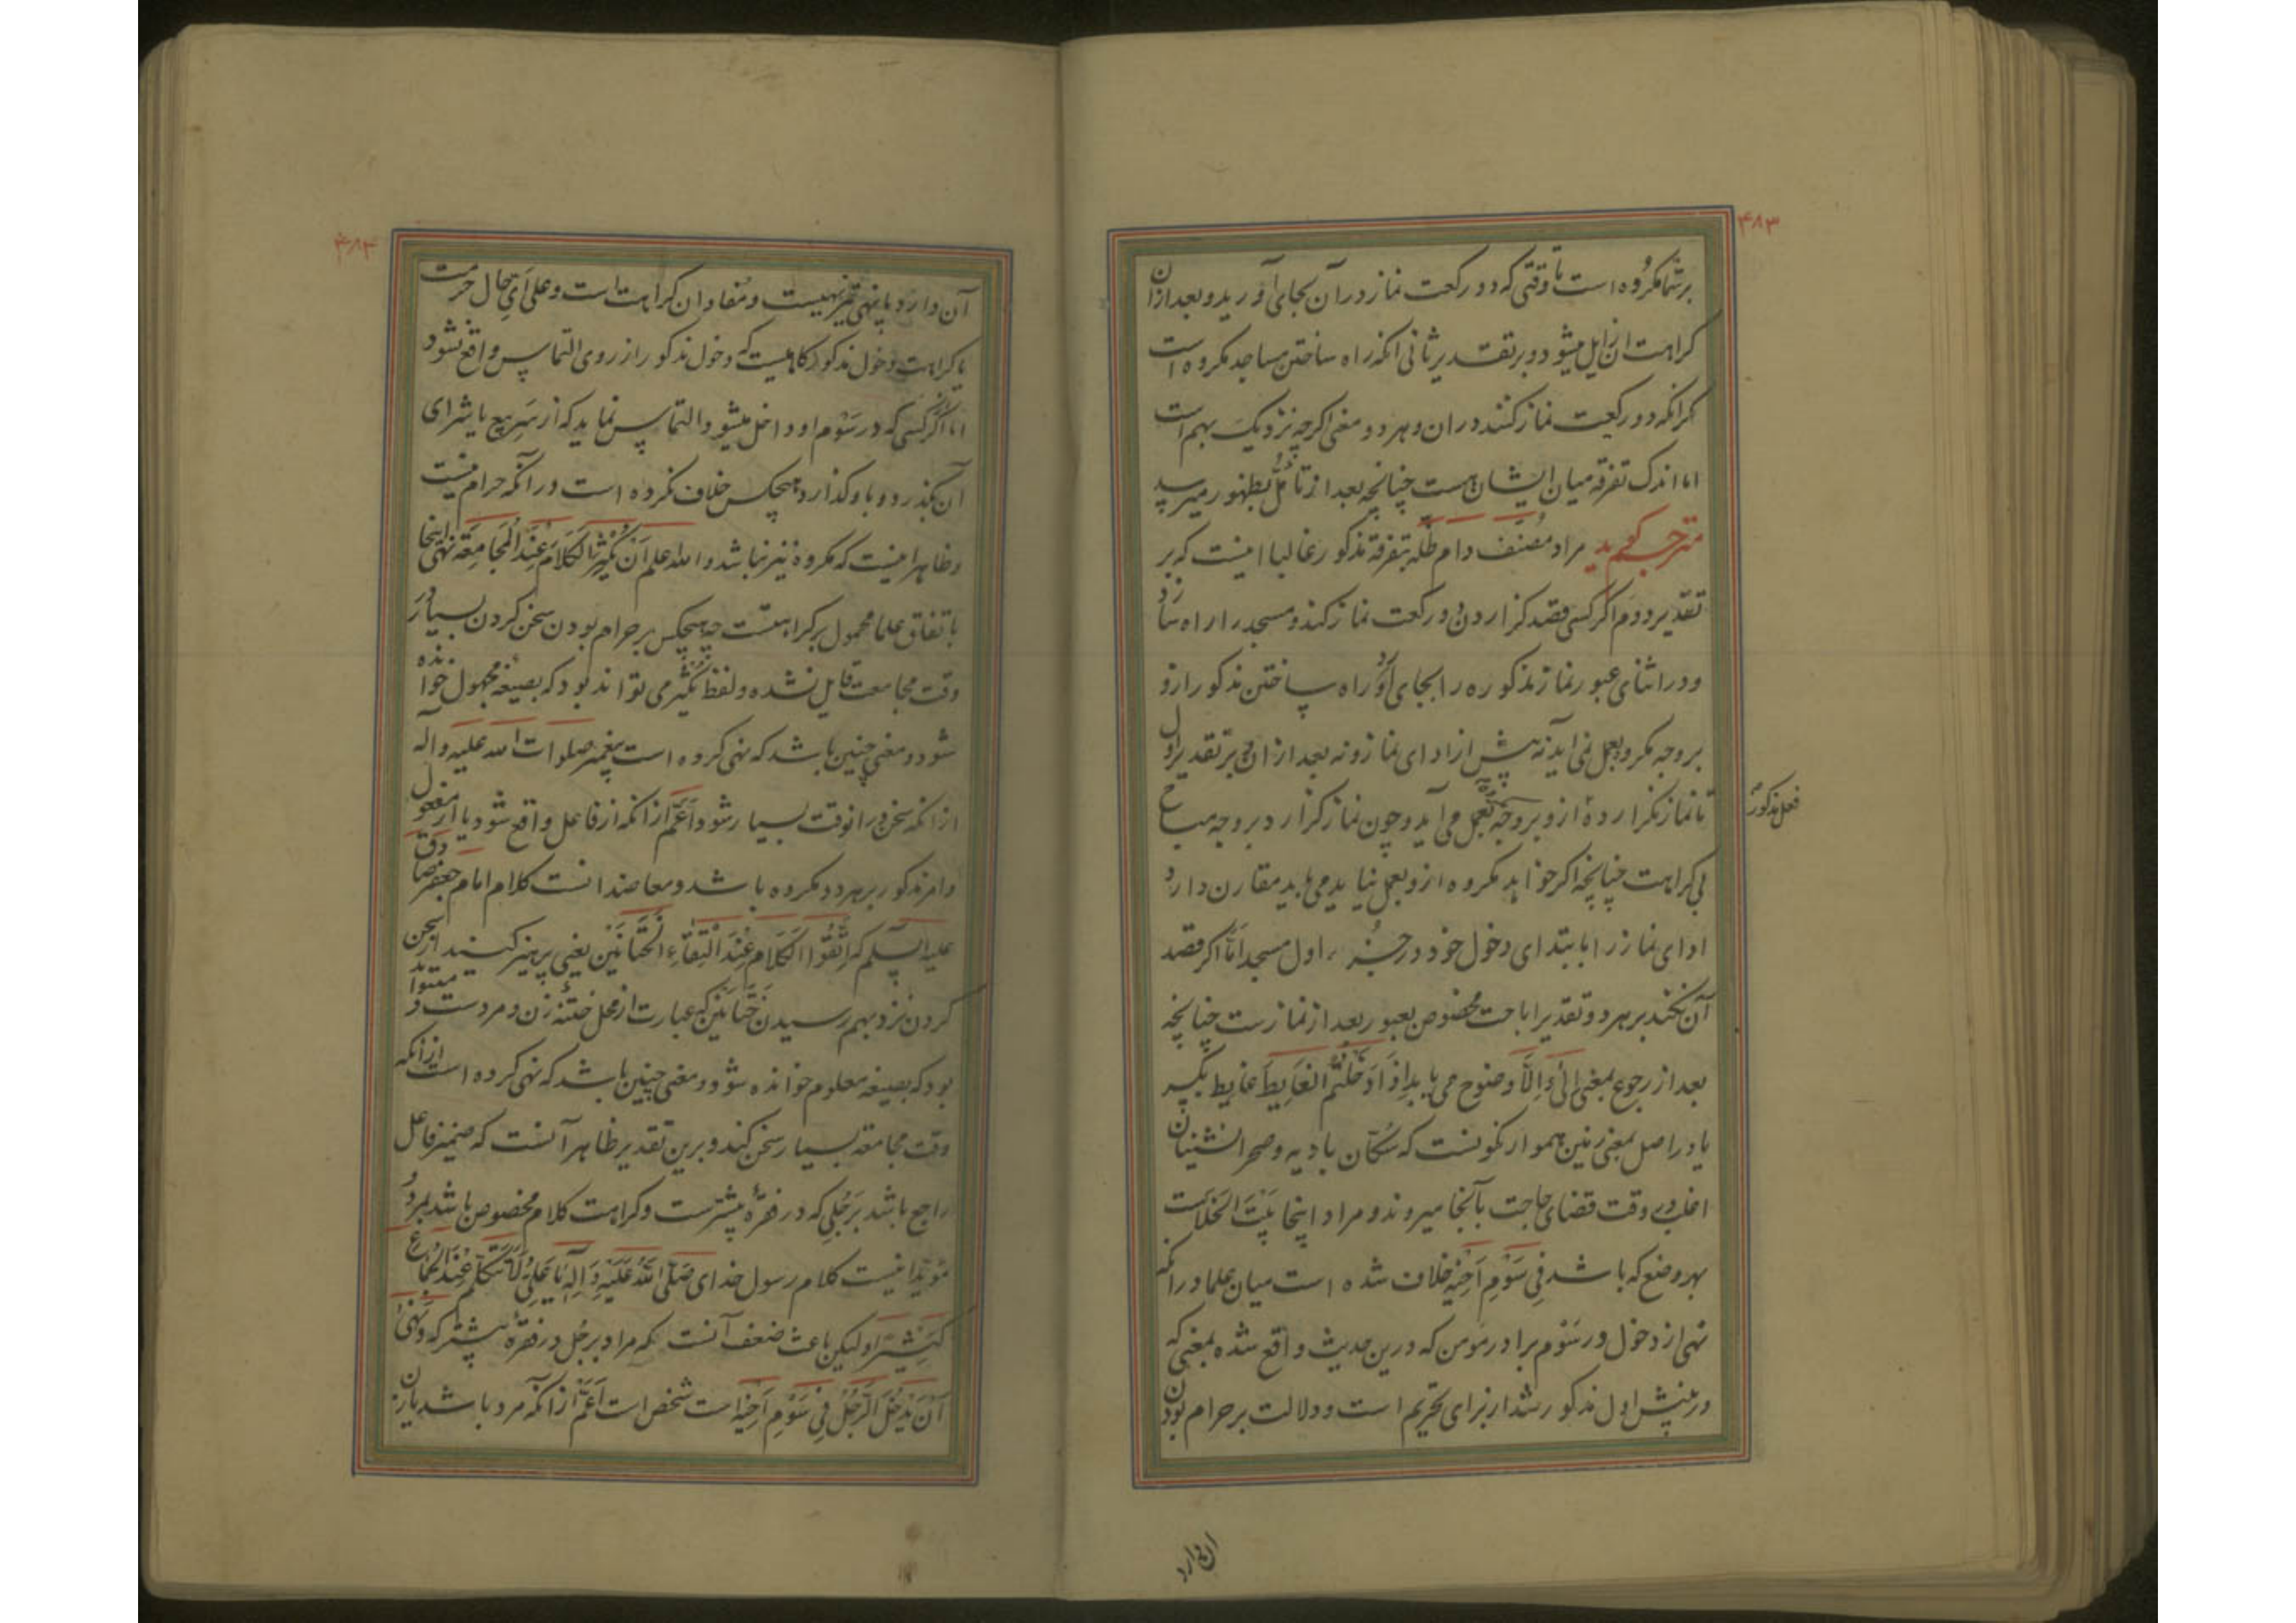 ۴۸۳
بر شما مکروه است تا وقتی که دو رکعت نماز در آن بجای آورید و بعد از آن
کراهت آن زایل میشود و بر تقدیر ثانی آنکه راه ساختن مساجد مکروه است
مگر آنکه دو رکعت نماز کنند در ان و هر دو معنی اگرچه نزدیک بهم است
اما اندک تفرقه میان ایشان هست چنانچه بعد از تامل بظهور میرسد
مترجم گوید مراد مصنف دام ظله بتفرقه مذکور غالبا اینست که بر
تقدیر دوم اگر کسی قصد گزاردن دو رکعت نماز کند و مسجد را راه سازد
و در اثنای عبور نماز مذکوره را بجای آورد راه ساختن مذکور ازو
بر وجه مکروه بعمل نمی آید نه پیش از ادای نماز و نه بعد از ان و بر تقدیر اول
تا نماز نگزارده ازو بر وجه بعمل می آید و چون نماز گزارد بر وجه مباح
فعل مذکور
بی کراهت چنانچه اگر خواهد مکروه ازو بعمل نیاید می باید مقارن دارد
ادای نماز را با ابتدای دخول خود در جزء اول مسجد اما اگر قصد
آن نکند بر هر دو تقدیر اباحت مخصوص بعبور بعد از نماز ست چنانچه
بعد از رجوع بمعنی الی و الا وضوح می یابد اذا دخلتم الغایط غایط بکسر
یا در اصل بمعنی زمین هموار نکونست که سکان بادیه و صحرانشینان
اغلب وقت قضای حاجت بآنجا میروند و مراد اینجا بیت الخلاست
بهر وضع که باشد فی سوم اخیه خلاف شده است میان علما در آنکه
نهی از دخول در سوم برادر مومن که درین حدیث واقع شده بمعنی که
در پیش اول مذکور شد از برای تحریم است و دلالت بر حرام بودن
آن دارد
۴۸۴
آن دارد یا نهی تنزیهیست و مفاد ان کراهت است و علی ای حال حرمت
یا کراهت دخول مذکور گاهیست که دخول مذکور از روی التماس واقع نشود
اما اگر کسی که در سوم او داخل میشود التماس نماید که از سر بیع یا شرای
آن بگذرد و باو گذارد هیچکس خلاف نکرده است در آنکه حرام نیست
و ظاهر اینست که مکروه نیز نباشد والله اعلم ان یکثر الکلام عند المجامعة نهی اینجا
باتفاق علما محمول بر کراهتست چه هیچکس بر حرام بودن سخن کردن بسیار در
وقت مجامعت قایل نشده و لفظ یکثر می تواند بود که بصیغه مجهول خوانده
شود و معنی چنین باشد که نهی کرده است پیغمبر صلوات الله علیه و آله
از آنکه سخن در انوقت بسیار شود اعم از آنکه از فاعل واقع شود یا از مفعول
و امر مذکور بر هر دو مکروه باشد و معاضد انست کلام امام جعفر صادق
علیه السلم که اتقوا الکلام عند التقاء الختانین یعنی پرهیز کنید از سخن
کردن نزد بهم رسیدن ختانین که عبارت از محل ختنه زن و مردست و میتواند
بود که بصیغه معلوم خوانده شود و معنی چنین باشد که نهی کرده است از آنکه
وقت مجامعة بسیار سخن کند و برین تقدیر ظاهر آنست که ضمیر فاعل
راجع باشد برجلی که در فقره پیشترست و کراهت کلام مخصوص باشد بمرد و
مؤید اینست کلام رسول خدای صلی الله علیه و اله یا علی لا تتکلم عند الجماع
کثیرا و لیکن باعث ضعف آنست که مراد برجل در فقره پیشتر که و نهی
ان یدخل الرجل فی سوم اخیه است شخص است اعم از آنکه مرد باشد یا زن